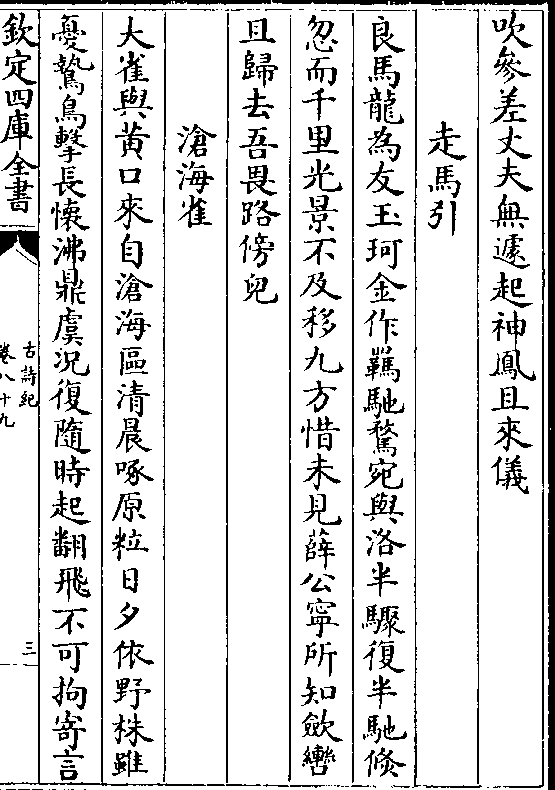 吹參差丈夫無遽起神鳳且來儀
走馬引
良馬龍為友玉珂金作羈馳騖宛與洛半驟復半馳倏
忽而千里光景不及移九方惜未見薛公寧所知歛轡
且歸去吾畏路傍兒
滄海雀
大雀與黃口來自滄海區清晨啄原粒日夕依野株雖
憂鷙鳥擊長懷沸鼎虞況復隨時起翻飛不可拘寄言
欽定四庫全書
古詩紀
卷八十九
三